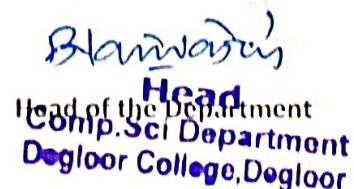 Head
Head of the Department
Comp.Sci Department
Degloor College,Degloor